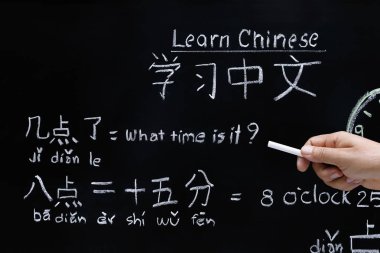 Learn Chinese
学习中文
几点了 = what time is it?
jǐ diǎn le
八点二十五分 = 8 o'clock 25
bā diǎn èr shí wǔ fēn
diǎn